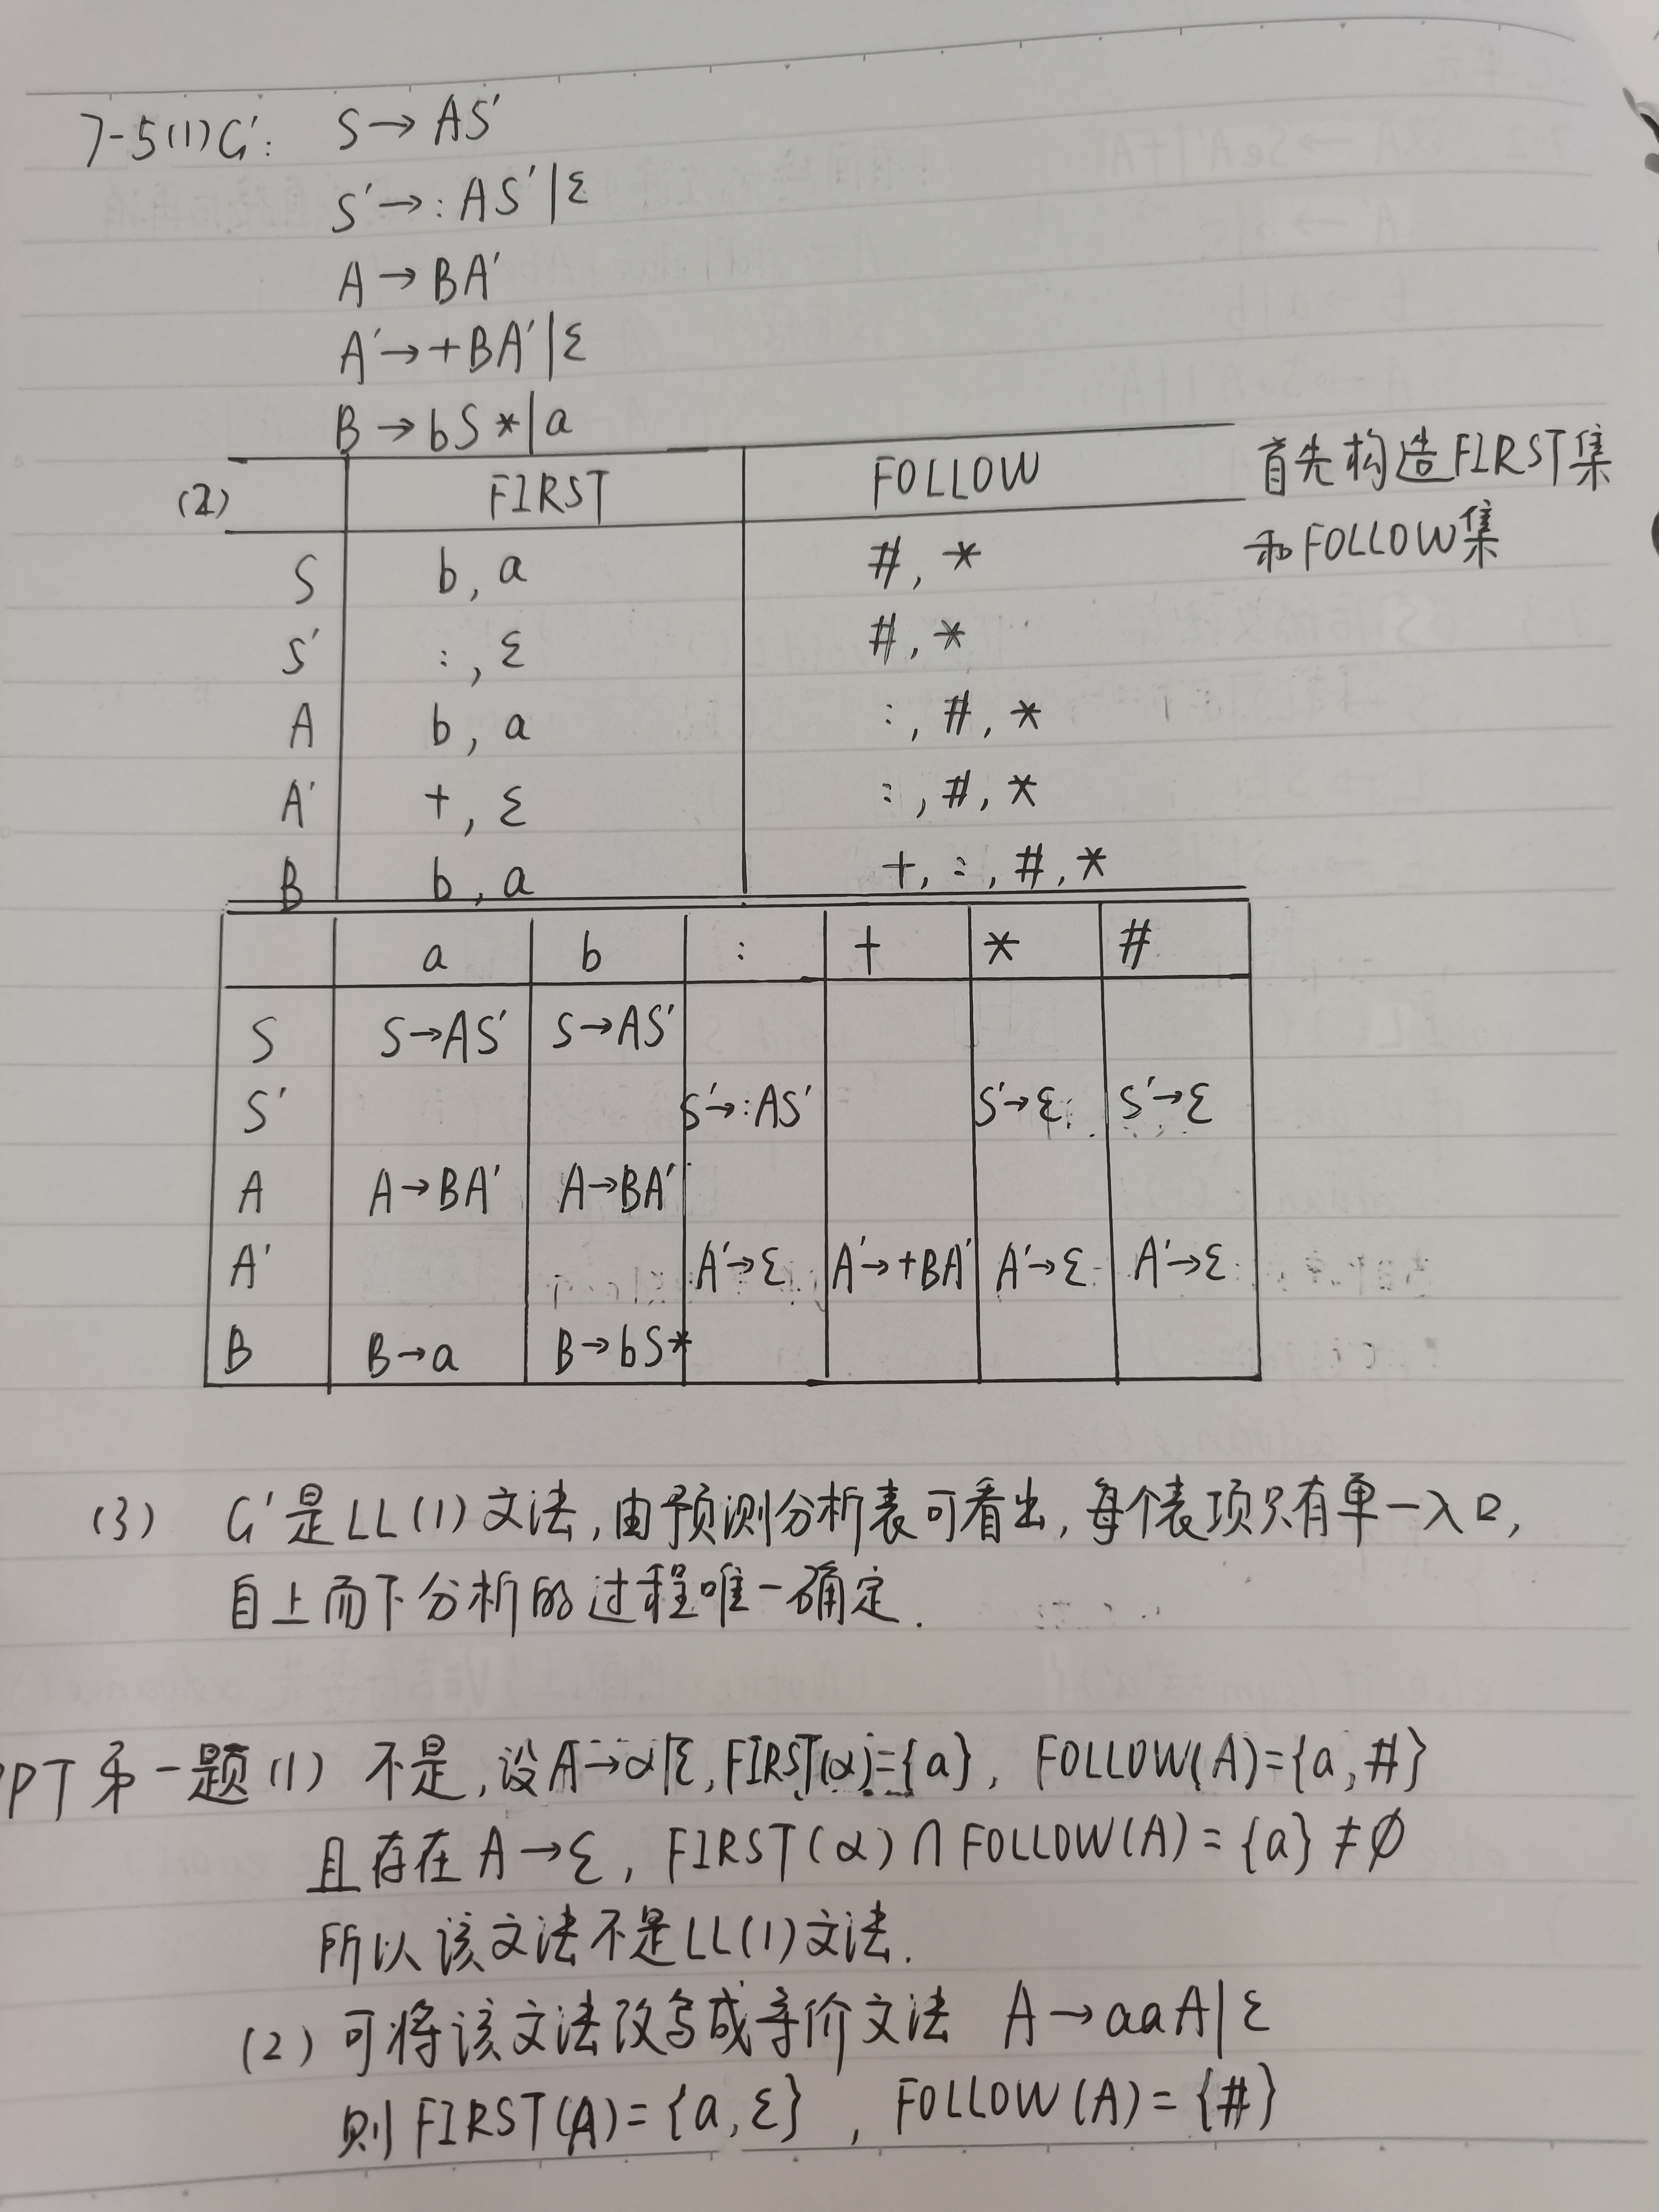 7-5(1)G': S→AS'
S'→:AS'|ε
A→BA'
A'→+BA'|ε
B→bS*|a
(2) FIRST FOLLOW 首先构造FIRST集
和FOLLOW集
S b,a #,*
S' :,ε #,*
A b,a :,#,*
A' +,ε :,#,*
B b,a +,:,#,*
a b : + * #
S S→AS' S→AS'
S' S'→:AS' S'→ε S'→ε
A A→BA' A→BA'
A' A'→ε A'→+BA' A'→ε A'→ε
B B→a B→bS*
(3) G'是LL(1)文法,由预测分析表可看出,每个表项只有单一入口,
自上而下分析的过程唯一确定.
PPT第一题(1) 不是,设A→α|ε,FIRST(α)={a}, FOLLOW(A)={a,#}
且存在A→ε, FIRST(α)∩FOLLOW(A)={a}≠∅
所以该文法不是LL(1)文法.
(2)可将该文法改写成等价文法 A→aaA|ε
则FIRST(A)={a,ε}, FOLLOW(A)={#}